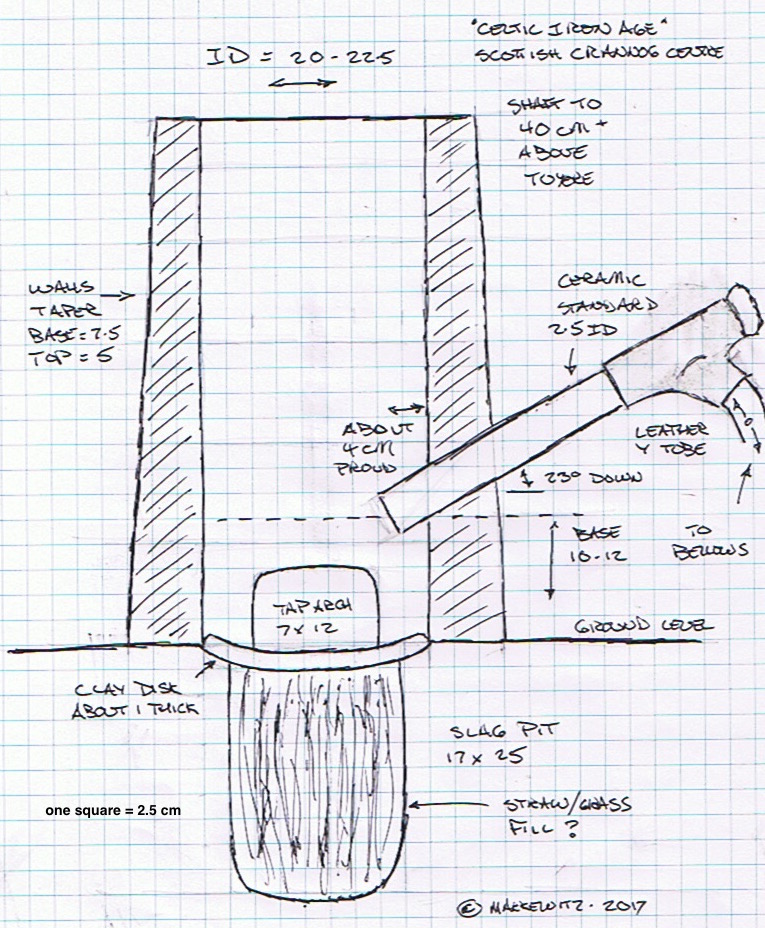 "CELTIC IRON AGE"
SCOTTISH CRANNOG CENTRE
ID = 20-22.5
SHAFT TO
40 CM +
ABOVE
TUYERE
WALLS
TAPER
BASE = 7.5
TOP = 5
CERAMIC
STANDARD
2.5 ID
ABOUT
4 CM
PROUD
LEATHER
Y TUBE
23° DOWN
BASE
10-12
TO
BELLOWS
TAP ARCH
7 x 12
GROUND LEVEL
CLAY DISK
ABOUT 1 THICK
SLAG PIT
17 x 25
one square = 2.5 cm
STRAW/GRASS
FILL ?
© MARKEWITZ · 2017